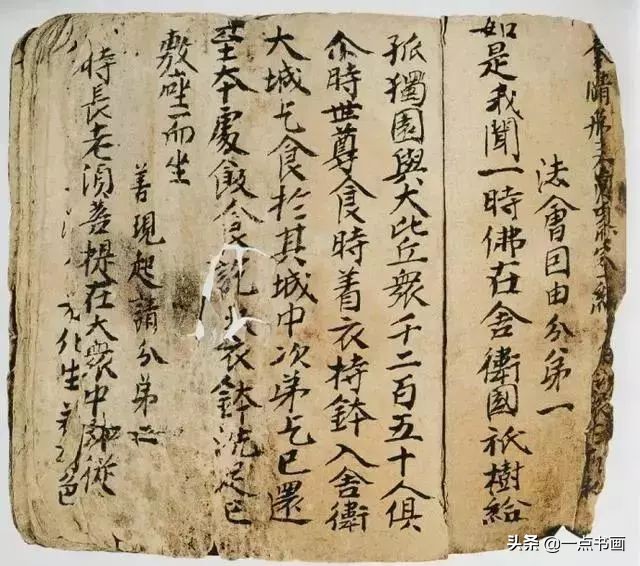 奉請
法會囙由分第一
如是我聞一時佛在舍衛國祇樹給
孤獨園與大比丘衆千二百五十人俱
尒時世尊食時着衣持鉢入舍衛
大城乞食於其城中次第乞已還
至本處飯食訖收衣鉢洗足已
敷座而坐
善現起請分第二
時長老須菩提在大衆中即從
化生若 色
头条 @一点书画